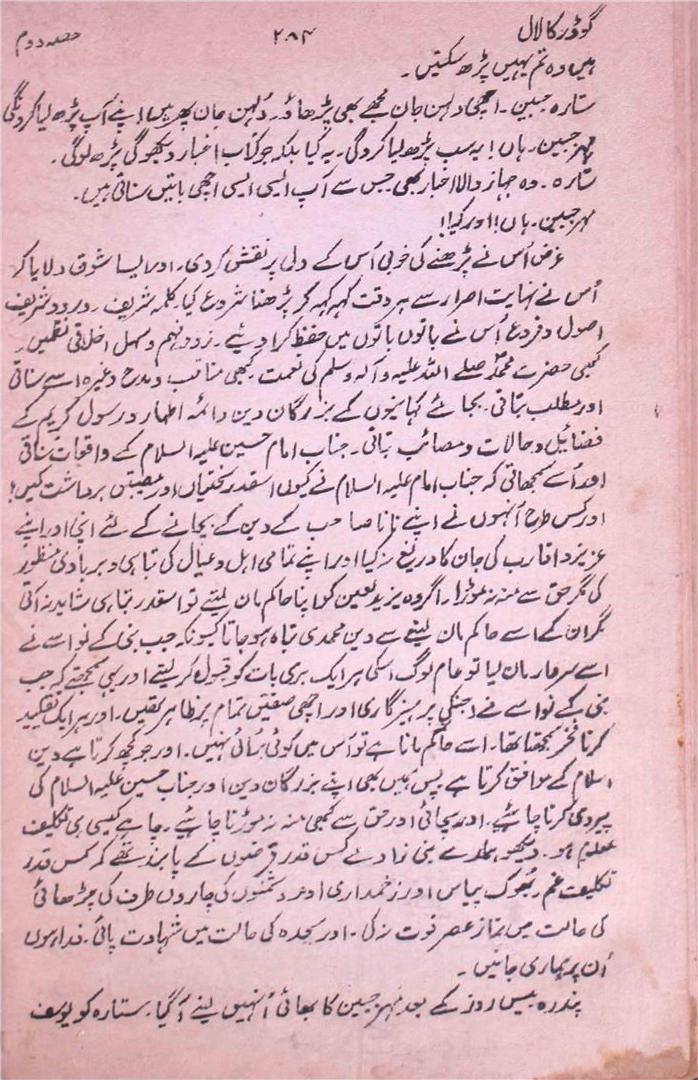 گوڈر کا لال ۲۸۴ حصہ دوم
ہیں وہ تم نہیں پڑھ سکتیں۔
ستارہ جبین۔ اچھی دلہن جان مجھے بھی پڑھاؤ۔ دُلہن جان پھر میں اپنے آپ پڑھ لیا کرونگی
مہر جبین۔ ہاں! یہ سب پڑھ لیا کروگی۔ یہ کیا بلکہ جو کتاب اخبار دیکھوگی پڑھ لوگی۔
ستارہ۔ وہ جہاز والا اخبار بھی جس سے آپ ایسی ایسی اچھی باتیں سناتی ہیں۔
مہر جبین۔ ہاں! اور کیا!
غرض اُس نے پڑھنے کی خوبی اُس کے دل پر نقش کر دی۔ اور ایسا شوق دلایا کہ
اُس نے نہایت اصرار سے ہر وقت کہہ کہہ کر پڑھنا شروع کیا۔ کلمہ شریف۔ درود شریف
اصول و فروع اُس نے باتوں باتوں میں حفظ کرا دیے۔ زود فہم و سہل اخلاقی نظمیں۔
کبھی حضرت محمد صلے اللہ علیہ و آلہ وسلم کی نعمت کبھی مناقب و مدح وغیرہ اسے سناتی
اور مطلب بتاتی۔ بجائے کہانیوں کے بزرگان دین و ائمہ اطہار و رسول کریم کے
فضائل و حالات و مصائب بتاتی۔ جناب امام حسین علیہ السلام کے واقعات سناتی
اور اُسے سمجھاتی کہ جناب امام علیہ السلام نے کیوں اسقدر سختیاں اور مصیبتیں برداشت کیں!
اور کس طرح اُنہوں نے اپنے نانا صاحب کے دین کے بچانے کے لئے اپنی اور اپنے
عزیز و اقارب کی جان کا دریغ نہ کیا اور اپنے تمامی اہل و عیال کی تباہی و بربادی منظور
کی مگر حق سے منہ نہ موڑا۔ اگر وہ یزید لعین کو اپنا حاکم مان لیتے تو اسقدر تباہی شاید نہ آتی
مگر ان کے اسے حاکم مان لینے سے دین محمدی تباہ ہو جاتا کیونکہ جب نبی کے نواسے نے
اسے سردار مان لیا تو عام لوگ اسکی ہر ایک بری بات کو قبول کر لیتے اور یہی سمجھتے کہ جب
نبی کے نواسے نے (جنکی پرہیزگاری اور اچھی صفتیں تمام پر ظاہر تھیں۔ اور ہر ایک تقلید
کرنا فخر سمجھتا تھا۔ اسے حاکم مانا ہے تو اُس میں کوئی برائی نہیں۔ اور جو کچھ کرتا ہے دین
اسلام کے موافق کرتا ہے پس ہمیں بھی اپنے بزرگان دین اور جناب حسین علیہ السلام کی
پیروی کرنا چاہئے۔ اور سچائی اور حق سے کبھی منہ نہ موڑنا چاہئے۔ چاہے کیسی ہی تکلیف
معلوم ہو۔ دیکھو ہمارے نبی زادے کس قدر فرضوں کے پابند تھے کہ کس قدر
تکلیف غم۔ بھوک پیاس اور زخمداری اور دشمنوں کی چاروں طرف کی چڑھائی
کی حالت میں نماز عصر فوت نہ کی۔ اور سجدہ کی حالت میں شہادت پائی۔ فدا ہوں
اُن پر ہماری جانیں۔
پندرہ بیس روز کے بعد مہر جبین کا بھائی اُنہیں لینے آ گیا۔ ستارہ کو یوسف